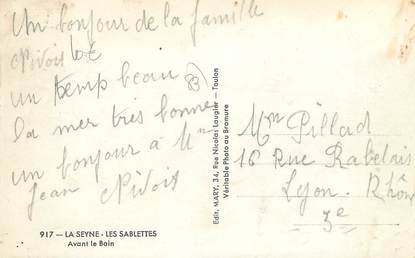 Un bonjour de la famille
Nivois
un temp beau
la mer très bonne
un bonjour à Mr
Jean Nivois
917 — LA SEYNE - LES SABLETTES
Avant le Bain
Edit. MARY, 34, Rue Nicolas Laugier — Toulon
Véritable Photo au Bromure
Mme Pillad
16 Rue Rabelais
Lyon. Rhône
3e